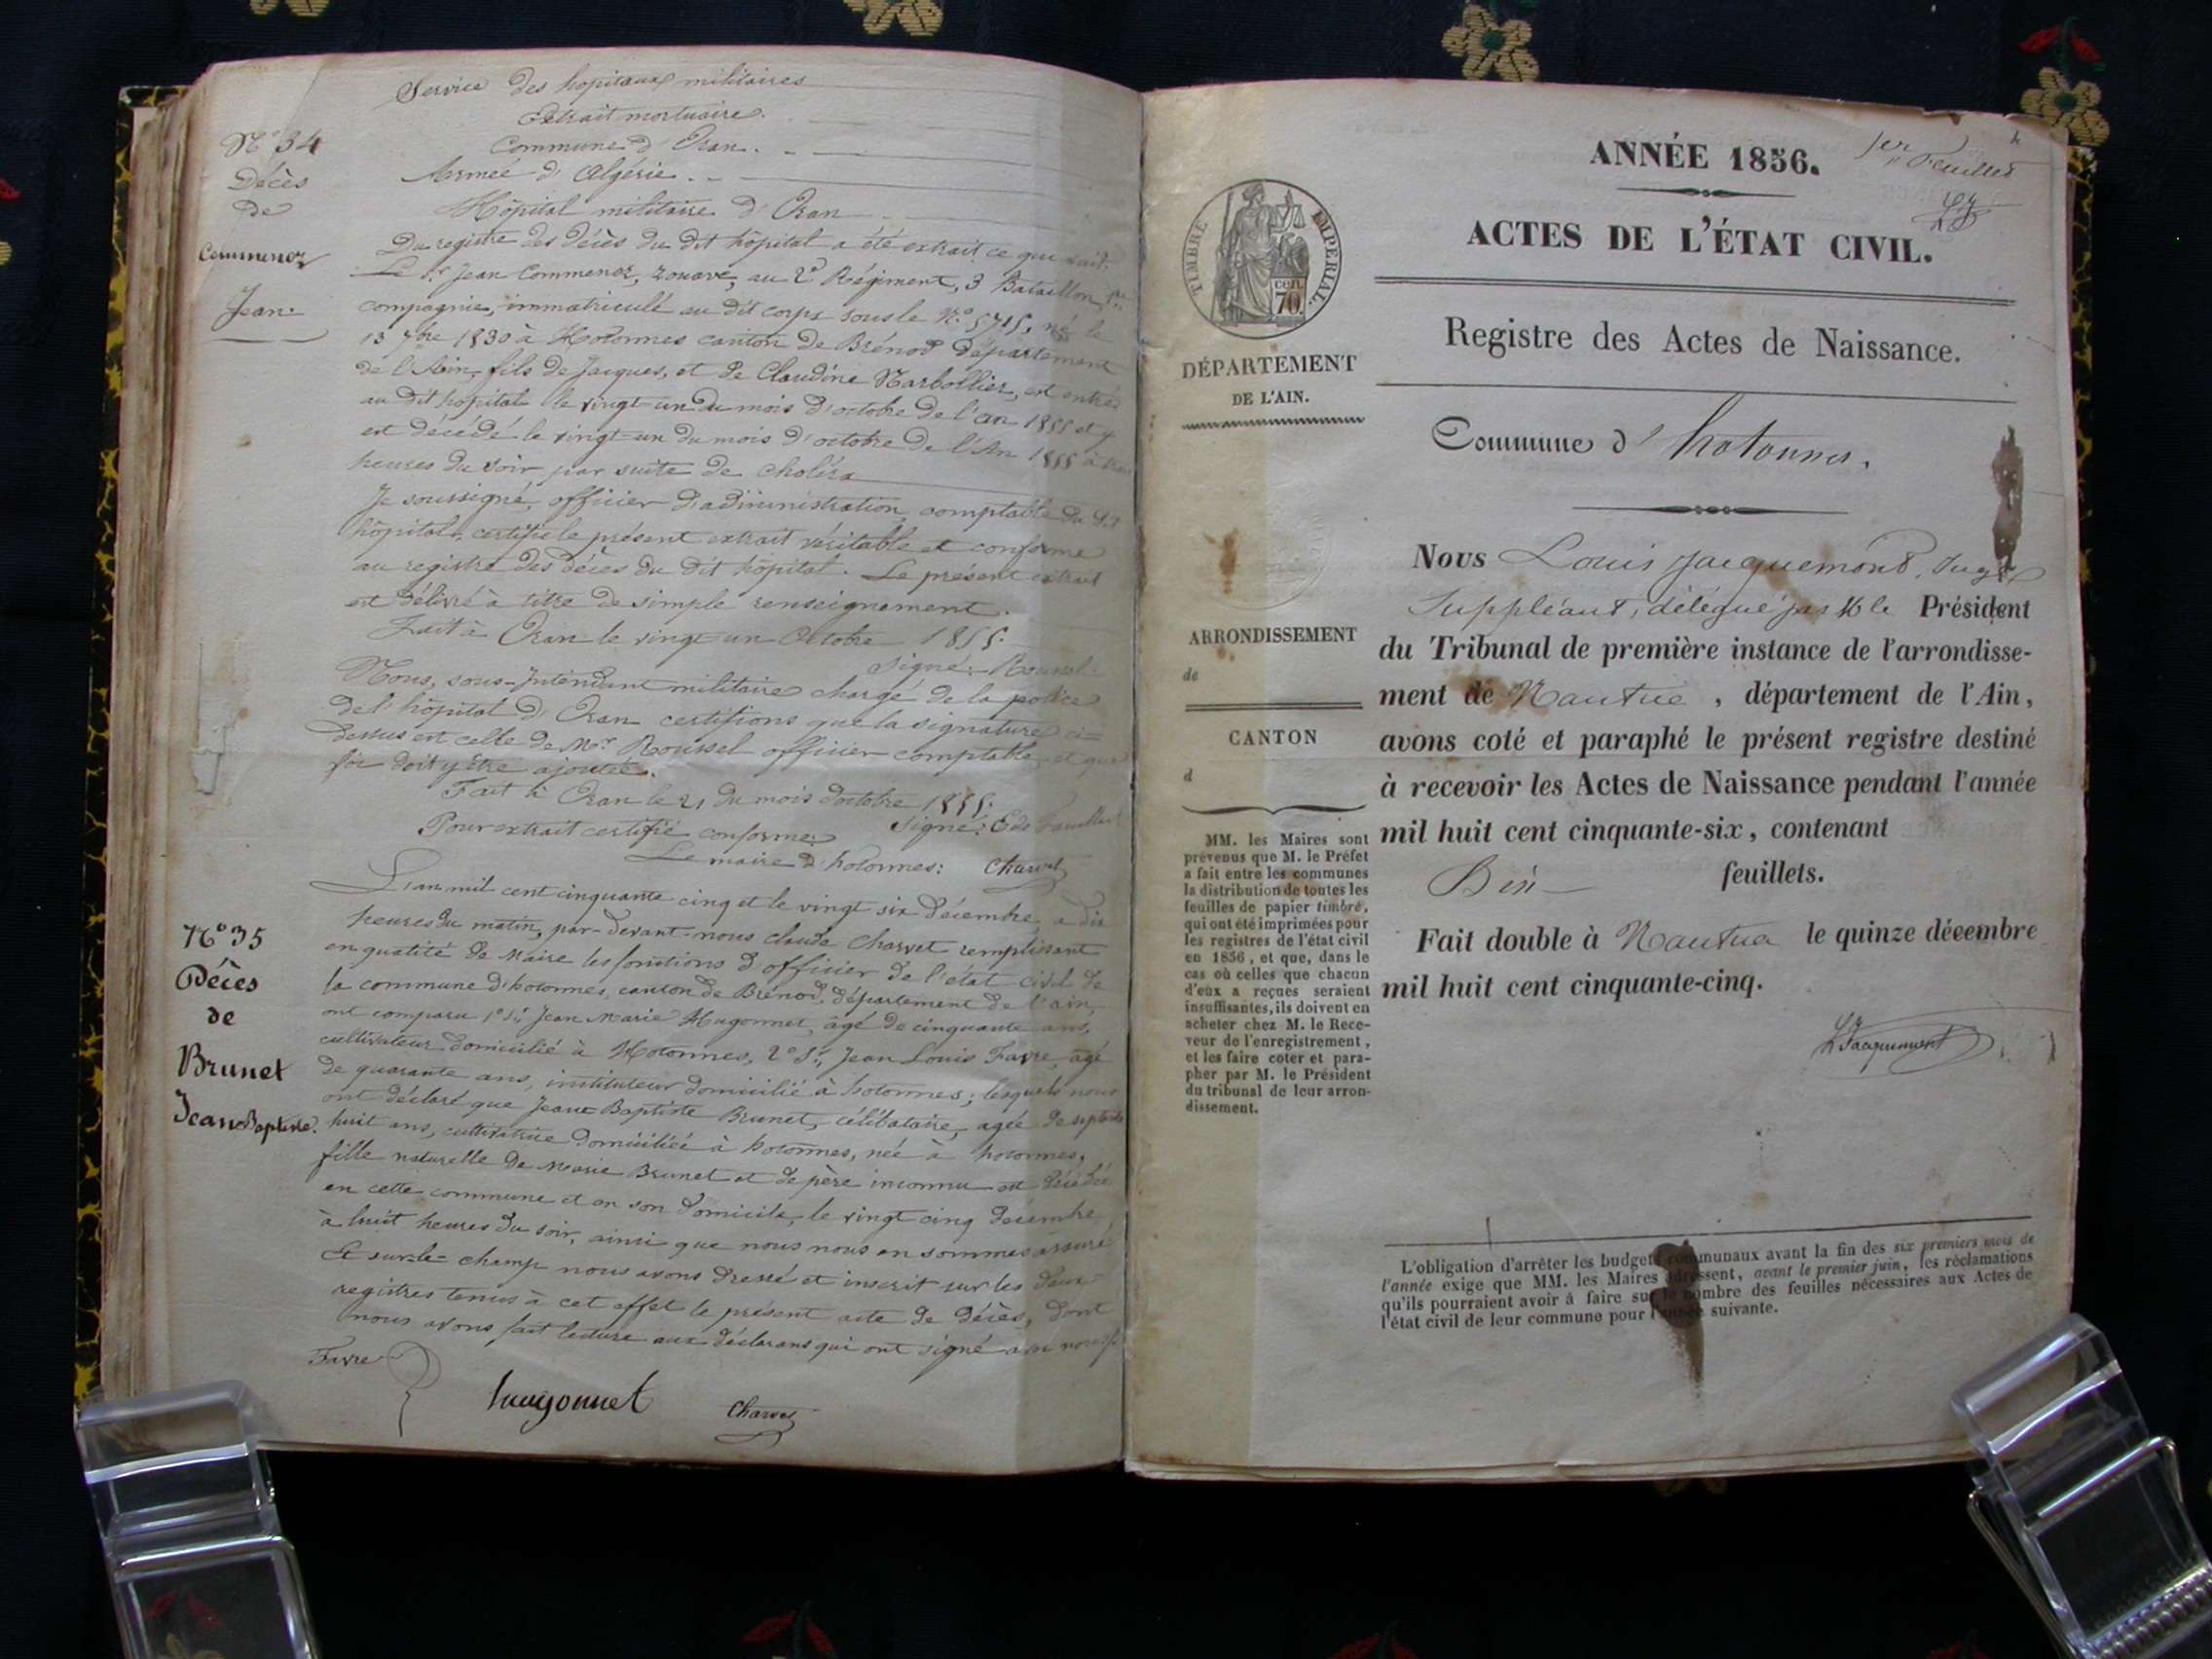 Service des hopitaux militaires
Extrait mortuaire.
Commune d'Oran.
Armée d'Algérie.
Hôpital militaire d'Oran
N° 34
Décès
de
Commenoz
Jean.
Du registre des décès du dit hôpital a été extrait ce qui suit.
Le Sr Jean Commenoz, zouave, au 2e Régiment, 3 Bataillon, 1re
compagnie, immatriculé au dit corps sous le N.° 5715, né le
13 7bre 1830 à Hotonnes canton de Brénod département
de l'Ain, fils de Jacques, et de Claudine Marbollier, est entré
au dit hopital le vingt-un du mois d'octobre de l'an 1855 et y
est décédé le vingt-un du mois d'octobre de l'An 1855 à
heures du soir par suite de choléra
Je soussigné, officier d'administration comptable du dit
hôpital, certifie le présent extrait véritable et conforme
au registre des décès du dit hôpital. Le présent extrait
est délivré à titre de simple renseignement.
Fait à Oran le vingt-un Octobre 1855.
Signé: Roussel.
Nous, sous-Intendant militaire chargé de la police
de l'hôpital d'Oran certifions que la signature ci=
dessus est celle de Mr Roussel officier comptable et que
foi doit y être ajoutée.
Fait à Oran le 21 du mois d'octobre 1855.
Signé:
Pour extrait certifié conforme:
Le maire d'hotonnes: Charvet
N° 35
Décès
de
Brunet
Jean Baptiste.
L'an mil cent cinquante cinq et le vingt six décembre, à dix
heures du matin, par-devant-nous claude Charvet remplissant
en qualité de Maire les fonctions d'officier de l'état civil de
la commune d'hotonnes, canton de Brénod, département de l'ain,
ont comparu 1° Sr Jean Marie Hugonnet, âgé de cinquante ans,
cultivateur domicilié à Hotonnes, 2° Sr Jean Louis Favre, agé
de quarante ans, instituteur domicilié à hotonnes; lesquels nous
ont déclaré que Jeane Baptiste Brunet, célibataire, agée de septante
huit ans, cultivatrice domiciliée à hotonnes, née à hotonnes,
fille naturelle de Marie Brunet et de père inconnu est décédée
en cette commune et en son domicile, le vingt cinq décembre,
à huit heures du soir, ainsi que nous nous en sommes assuré
Et sur-le-champ nous avons dressé et inscrit sur les deux
registres tenus à cet effet le présent acte de décès, dont
nous avons fait lecture aux déclarans qui ont signé avec nous
Favre hugonnet Charvet
1er Feuillet
ANNÉE 1856.
ACTES DE L'ÉTAT CIVIL.
TIMBRE IMPÉRIAL.
cen.
70.
Registre des Actes de Naissance.
DÉPARTEMENT
DE L'AIN.
Commune d'hotonnes.
Nous Louis Jacquemond, Juge
Suppléant, délégué par M le Président
du Tribunal de première instance de l'arrondisse-
ment de Nantua, département de l'Ain,
avons coté et paraphé le présent registre destiné
à recevoir les Actes de Naissance pendant l'année
mil huit cent cinquante-six, contenant
feuillets.
Fait double à Nantua le quinze décembre
mil huit cent cinquante-cinq.
LJacquemont
ARRONDISSEMENT
de
CANTON
d
MM. les Maires sont
prévenus que M. le Préfet
a fait entre les communes
la distribution de toutes les
feuilles de papier timbré,
qui ont été imprimées pour
les registres de l'état civil
en 1856, et que, dans le
cas où celles que chacun
d'eux a reçues seraient
insuffisantes, ils doivent en
acheter chez M. le Rece-
veur de l'enregistrement,
et les faire coter et para-
pher par M. le Président
du tribunal de leur arron-
dissement.
L'obligation d'arrêter les budgets communaux avant la fin des six premiers mois de
l'année exige que MM. les Maires adressent, avant le premier juin, les réclamations
qu'ils pourraient avoir à faire sur le nombre des feuilles nécessaires aux Actes de
l'état civil de leur commune pour l'année suivante.